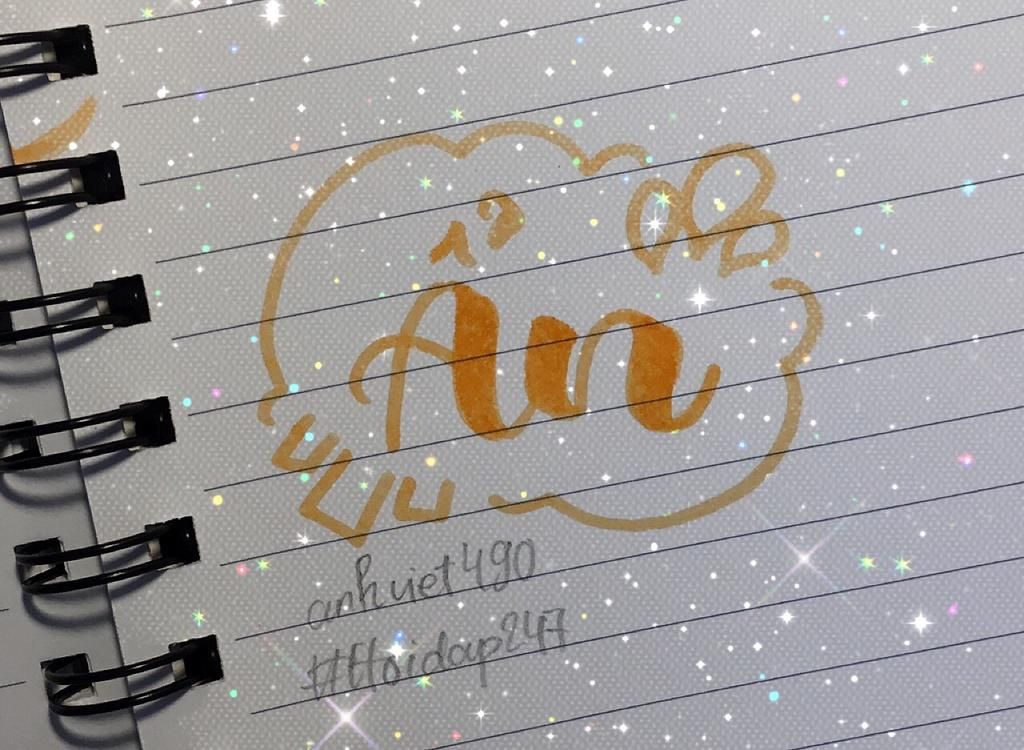 Ẩn
anhviet490
#Hoidap247